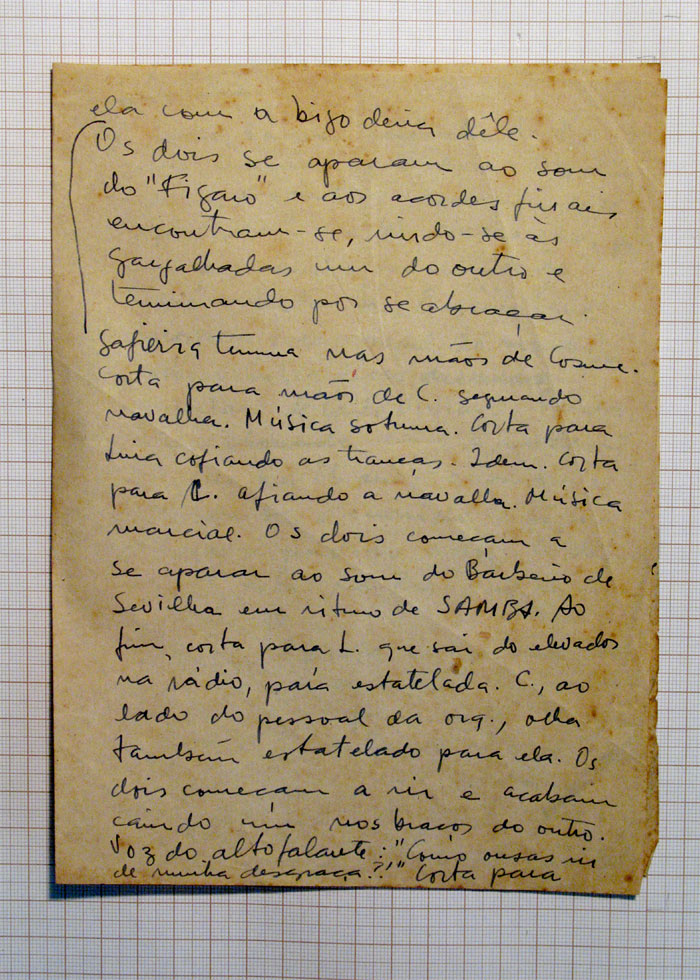 ela com a bigodeira dêle.
Os dois se aparam ao som
do "Figaro" e aos acordes finais
encontram-se, rindo-se às
gargalhadas um do outro e
terminando por se abraçar.
Gafieira termina nas mãos de Cosme.
Corta para mãos de C. segurando
navalha. Música soturna. Corta para
Lívia cofiando as tranças. Idem. Corta
para C. afiando a navalha. Música
marcial. Os dois começam a
se aparar ao som do Barbeiro de
Sevilha em ritmo de SAMBA. Ao
fim, corta para L. que sai do elevador
na rádio, para estatelada. C., ao
lado do pessoal da orq., olha
também estatelado para ela. Os
dois começam a rir e acabam
caindo um nos braços do outro.
Voz do altofalante: "Como ousas rir
de minha desgraça?!" Corta para